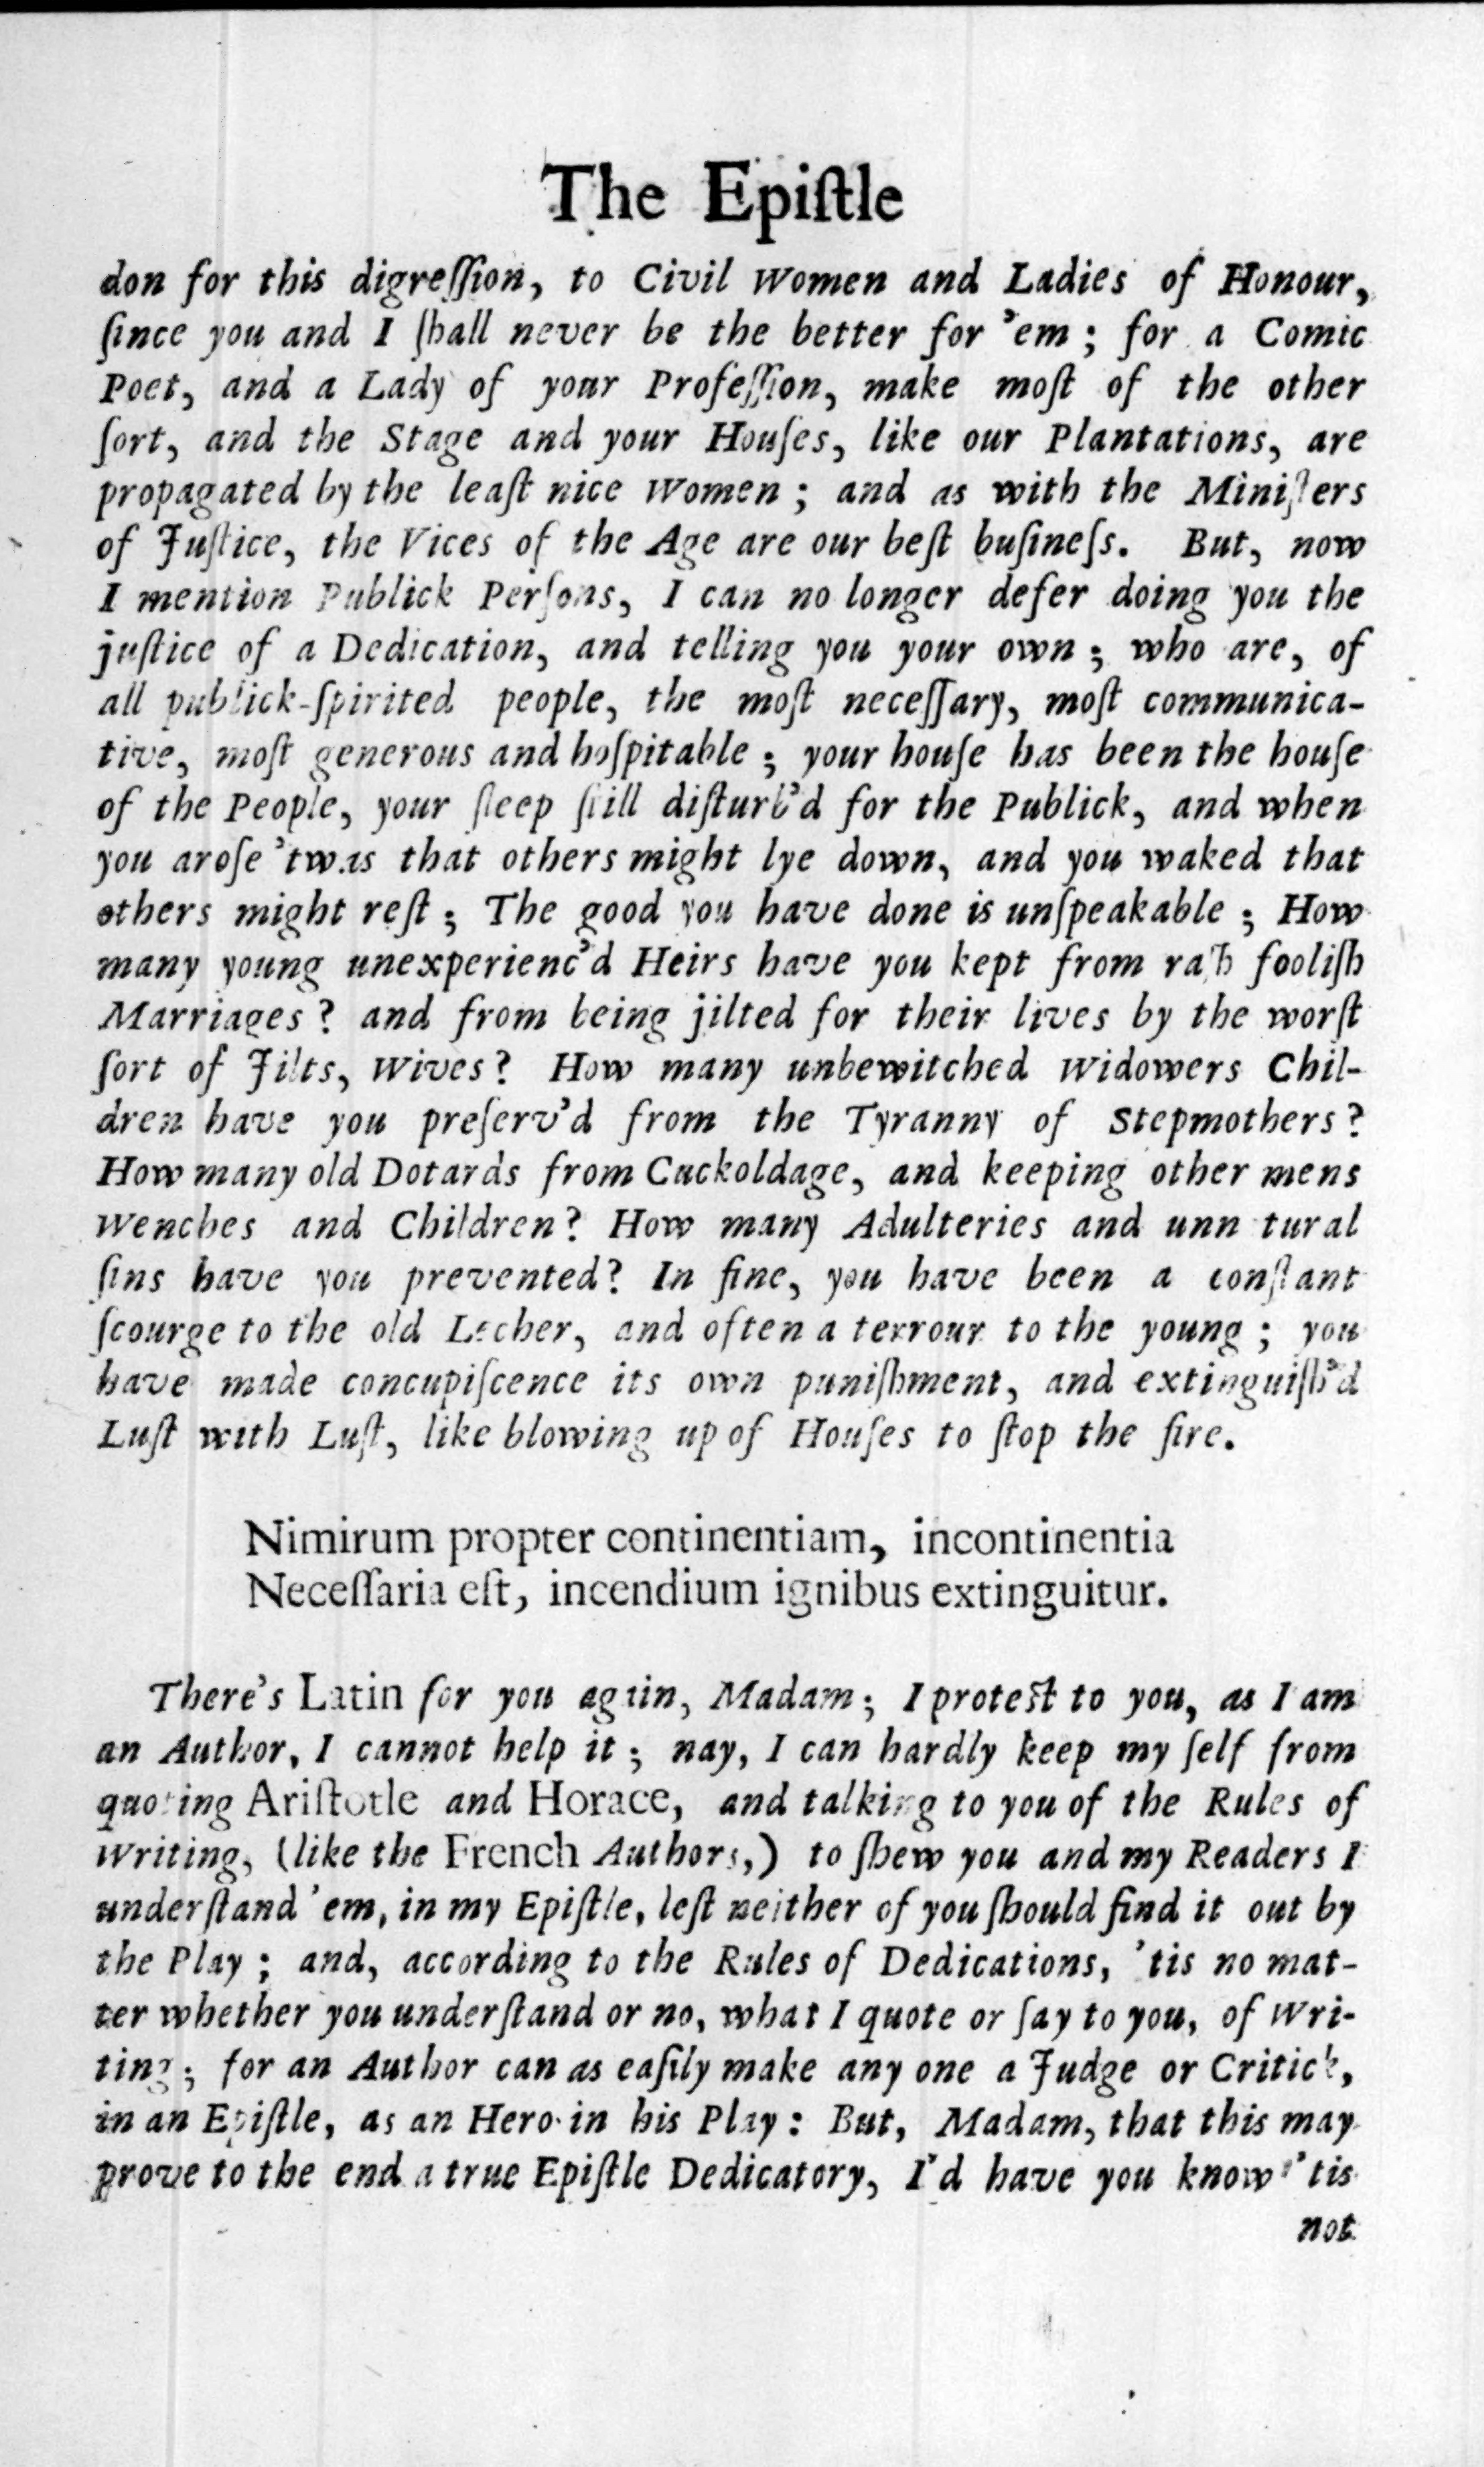 The Epiſtle
don for this digreſſion, to Civil Women and Ladies of Honour,
ſince you and I ſhall never be the better for 'em ; for a Comic
Poet, and a Lady of your Profeſſion, make moſt of the other
ſort, and the Stage and your Houſes, like our Plantations, are
propagated by the leaſt nice Women ; and as with the Miniſters
of Juſtice, the Vices of the Age are our beſt buſineſs. But, now
I mention Publick Perſons, I can no longer defer doing you the
juſtice of a Dedication, and telling you your own ; who are, of
all publick-ſpirited people, the moſt neceſſary, moſt communica-
tive, moſt generous and hoſpitable ; your houſe has been the houſe
of the People, your ſleep ſtill diſturb'd for the Publick, and when
you aroſe 'twas that others might lye down, and you waked that
others might reſt ; The good you have done is unſpeakable ; How
many young unexperienc'd Heirs have you kept from raſh fooliſh
Marriages ? and from being jilted for their lives by the worſt
ſort of Jilts, Wives ? How many unbewitched Widowers Chil-
dren have you preſerv'd from the Tyranny of Stepmothers ?
How many old Dotards from Cuckoldage, and keeping other mens
Wenches and Children ? How many Adulteries and unn tural
ſins have you prevented ? In fine, you have been a conſtant
ſcourge to the old Lecher, and often a terrour to the young ; you
have made concupiſcence its own puniſhment, and extinguiſh'd
Luſt with Luſt, like blowing up of Houſes to ſtop the fire.
Nimirum propter continentiam, incontinentia
Neceſſaria eſt, incendium ignibus extinguitur.
There's Latin for you again, Madam ; I proteſt to you, as I am
an Author, I cannot help it ; nay, I can hardly keep my ſelf from
quoting Ariſtotle and Horace, and talking to you of the Rules of
Writing, (like the French Authors,) to ſhew you and my Readers I
underſtand 'em, in my Epiſtle, leſt neither of you ſhould find it out by
the Play ; and, according to the Rules of Dedications, 'tis no mat-
ter whether you underſtand or no, what I quote or ſay to you, of Wri-
ting ; for an Author can as eaſily make any one a Judge or Critick,
in an Epiſtle, as an Hero in his Play : But, Madam, that this may
prove to the end a true Epiſtle Dedicatory, I'd have you know 'tis
not